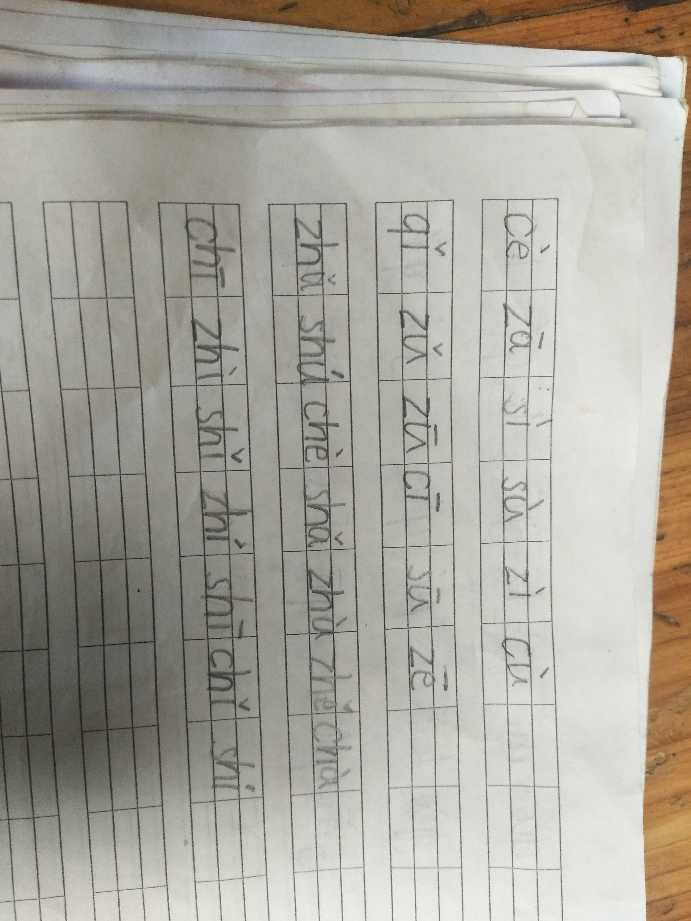 cè zā sì sù zì cù
qǐ zǔ zū cī sū zē
zhǔ shú chè shǎ zhù zhě chà
chī zhì shǐ zhí shī chǐ shí